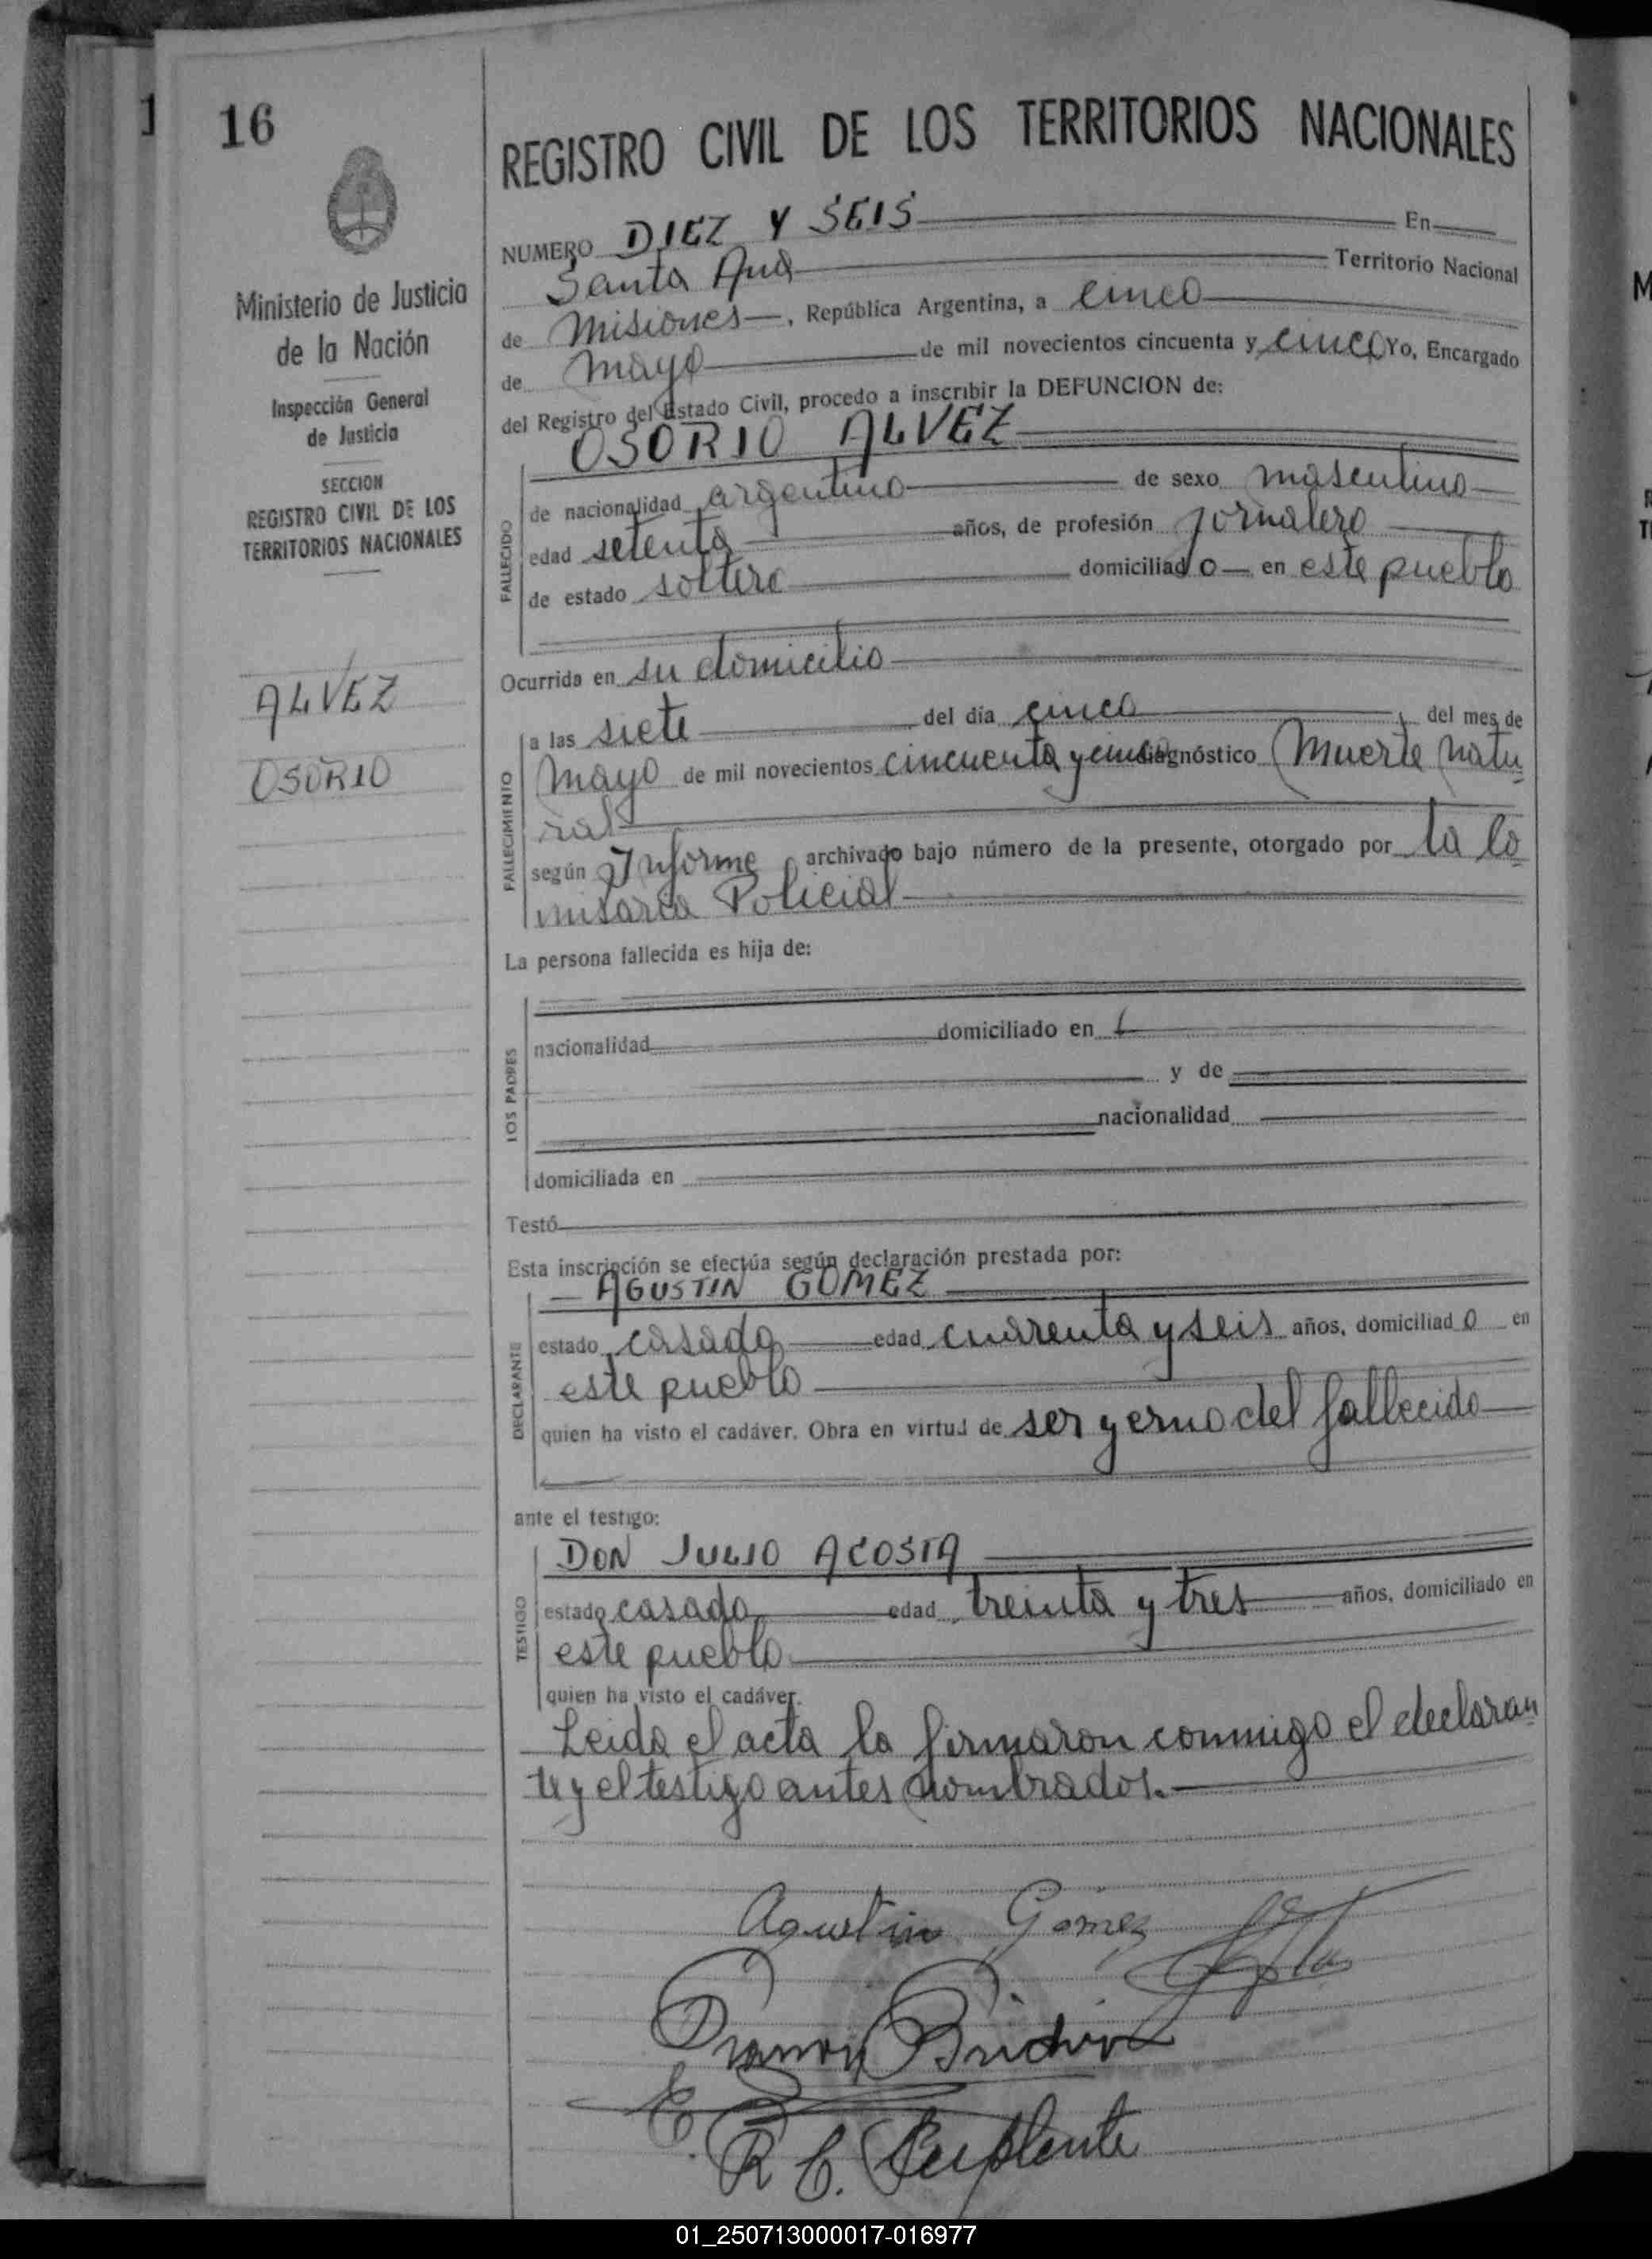 16
Ministerio de Justicia
de la Nación
Inspección General
de Justicia
SECCION
REGISTRO CIVIL DE LOS
TERRITORIOS NACIONALES
ALVEZ
OSORIO
REGISTRO CIVIL DE LOS TERRITORIOS NACIONALES
NUMERO DIEZ Y SEIS En
Santa Ana Territorio Nacional
de Misiones, República Argentina, a cinco
de mayo de mil novecientos cincuenta y cinco Yo, Encargado
del Registro del Estado Civil, procedo a inscribir la DEFUNCION de:
OSORIO ALVEZ
FALLECIDO
de nacionalidad argentino de sexo masculino
edad setenta años, de profesión jornalero
de estado soltero domiciliado en este pueblo
Ocurrida en su domicilio
FALLECIMIENTO
a las siete del día cinco del mes de
mayo de mil novecientos cincuenta y cinco diagnóstico Muerte natu-
ral
según Informe archivado bajo número de la presente, otorgado por la Co-
misaria Policial
La persona fallecida es hija de:
LOS PADRES
nacionalidad domiciliado en
y de
nacionalidad
domiciliada en
Testó
Esta inscripción se efectúa según declaración prestada por:
AGUSTIN GOMEZ
DECLARANTE
estado casado edad cuarenta y seis años, domiciliado en
este pueblo
quien ha visto el cadáver. Obra en virtud de ser yerno del fallecido
ante el testigo:
DON JULIO ACOSTA
TESTIGO
estado casado edad treinta y tres años, domiciliado en
este pueblo
quien ha visto el cadáver.
Leida el acta la firmaron conmigo el declaran-
te y el testigo antes nombrados.
Agustin Gomez
E.
R. C. Suplente
01_250713000017-016977